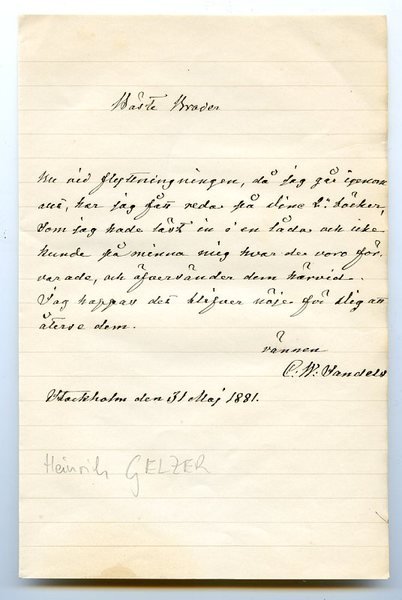 Bäste Broder
Nu vid flyttningningen, då jag går igenom
allt, har jag fått reda på dina 2:ne böcker,
som jag hade låst in i en låda och icke
kunde på minna mig hvar de voro för-
varade, och öfversänder dem härvid.
Jag hoppas det blifver nöje för dig att
återse dem.
vännen
C. W.
Stockholm den 31 Maj 1881.
Heinrich GELZER